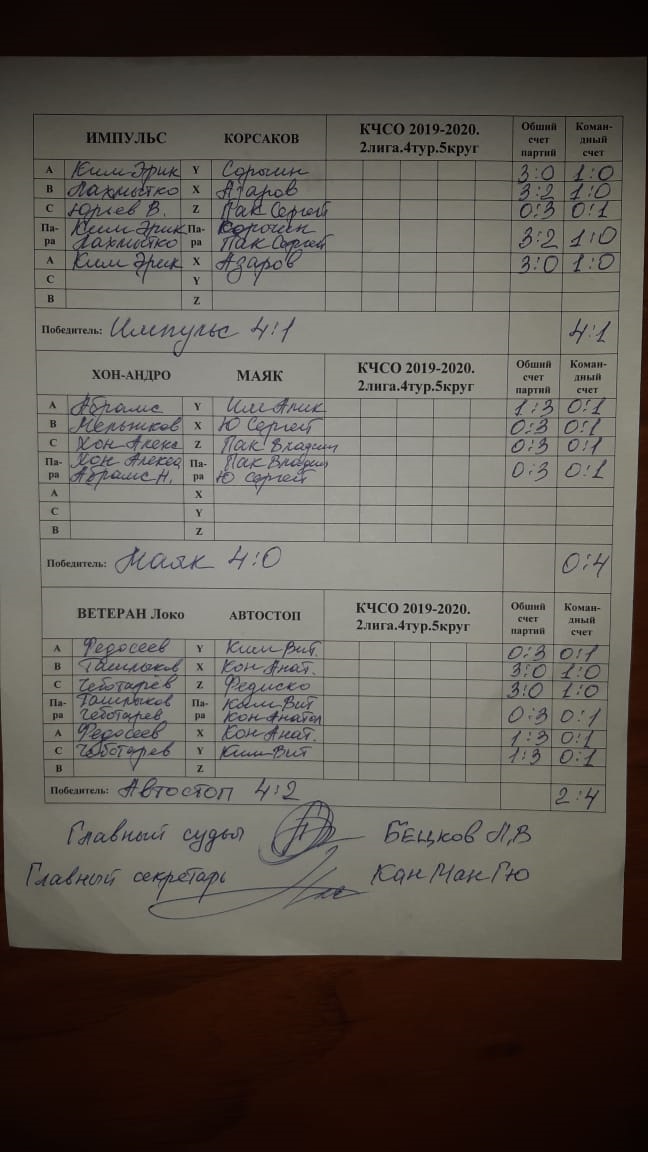 ИМПУЛЬС КОРСАКОВ КЧСО 2019-2020. 2лига.4тур.5круг Обший счет партий Коман-дный счет
А Ким Эрик Y Сорычин 3:0 1:0
В Лахмытко X Азаров 3:2 1:0
С Юрьев В. Z Пак Сергей 0:3 0:1
Па-ра Ким Эрик Лахмытко Па-ра Сорычин Пак Сергей 3:2 1:0
А Ким Эрик X Азаров 3:0 1:0
С Y
В Z
Победитель: Импульс 4:1 4:1
ХОН-АНДРО МАЯК КЧСО 2019-2020. 2лига.4тур.5круг Обший счет партий Коман-дный счет
А Абрамс Y Им Арик 1:3 0:1
В Мельников X Ю Сергей 0:3 0:1
С Хон Алекс Z Пак Владим 0:3 0:1
Па-ра Хон Алекса Абрамс Н. Па-ра Пак Владим Ю Сергей 0:3 0:1
А X
С Y
В Z
Победитель: Маяк 4:0 0:4
ВЕТЕРАН Локо АВТОСТОП КЧСО 2019-2020. 2лига.4тур.5круг Обший счет партий Коман-дный счет
А Федосеев Y Ким Вит. 0:3 0:1
В Ташлыков X Кон Анат. 3:0 1:0
С Чеботарев Z Федиско 3:0 1:0
Па-ра Ташлыков Чеботарев Па-ра Ким Вит Кон Анатол 0:3 0:1
А Федосеев X Кон Анат. 1:3 0:1
С Чеботарев Y Ким Вит 1:3 0:1
В Z
Победитель: Автостоп 4:2 2:4
Главный судья Бецков Л,В
Главный секретарь Кан Ман Гю